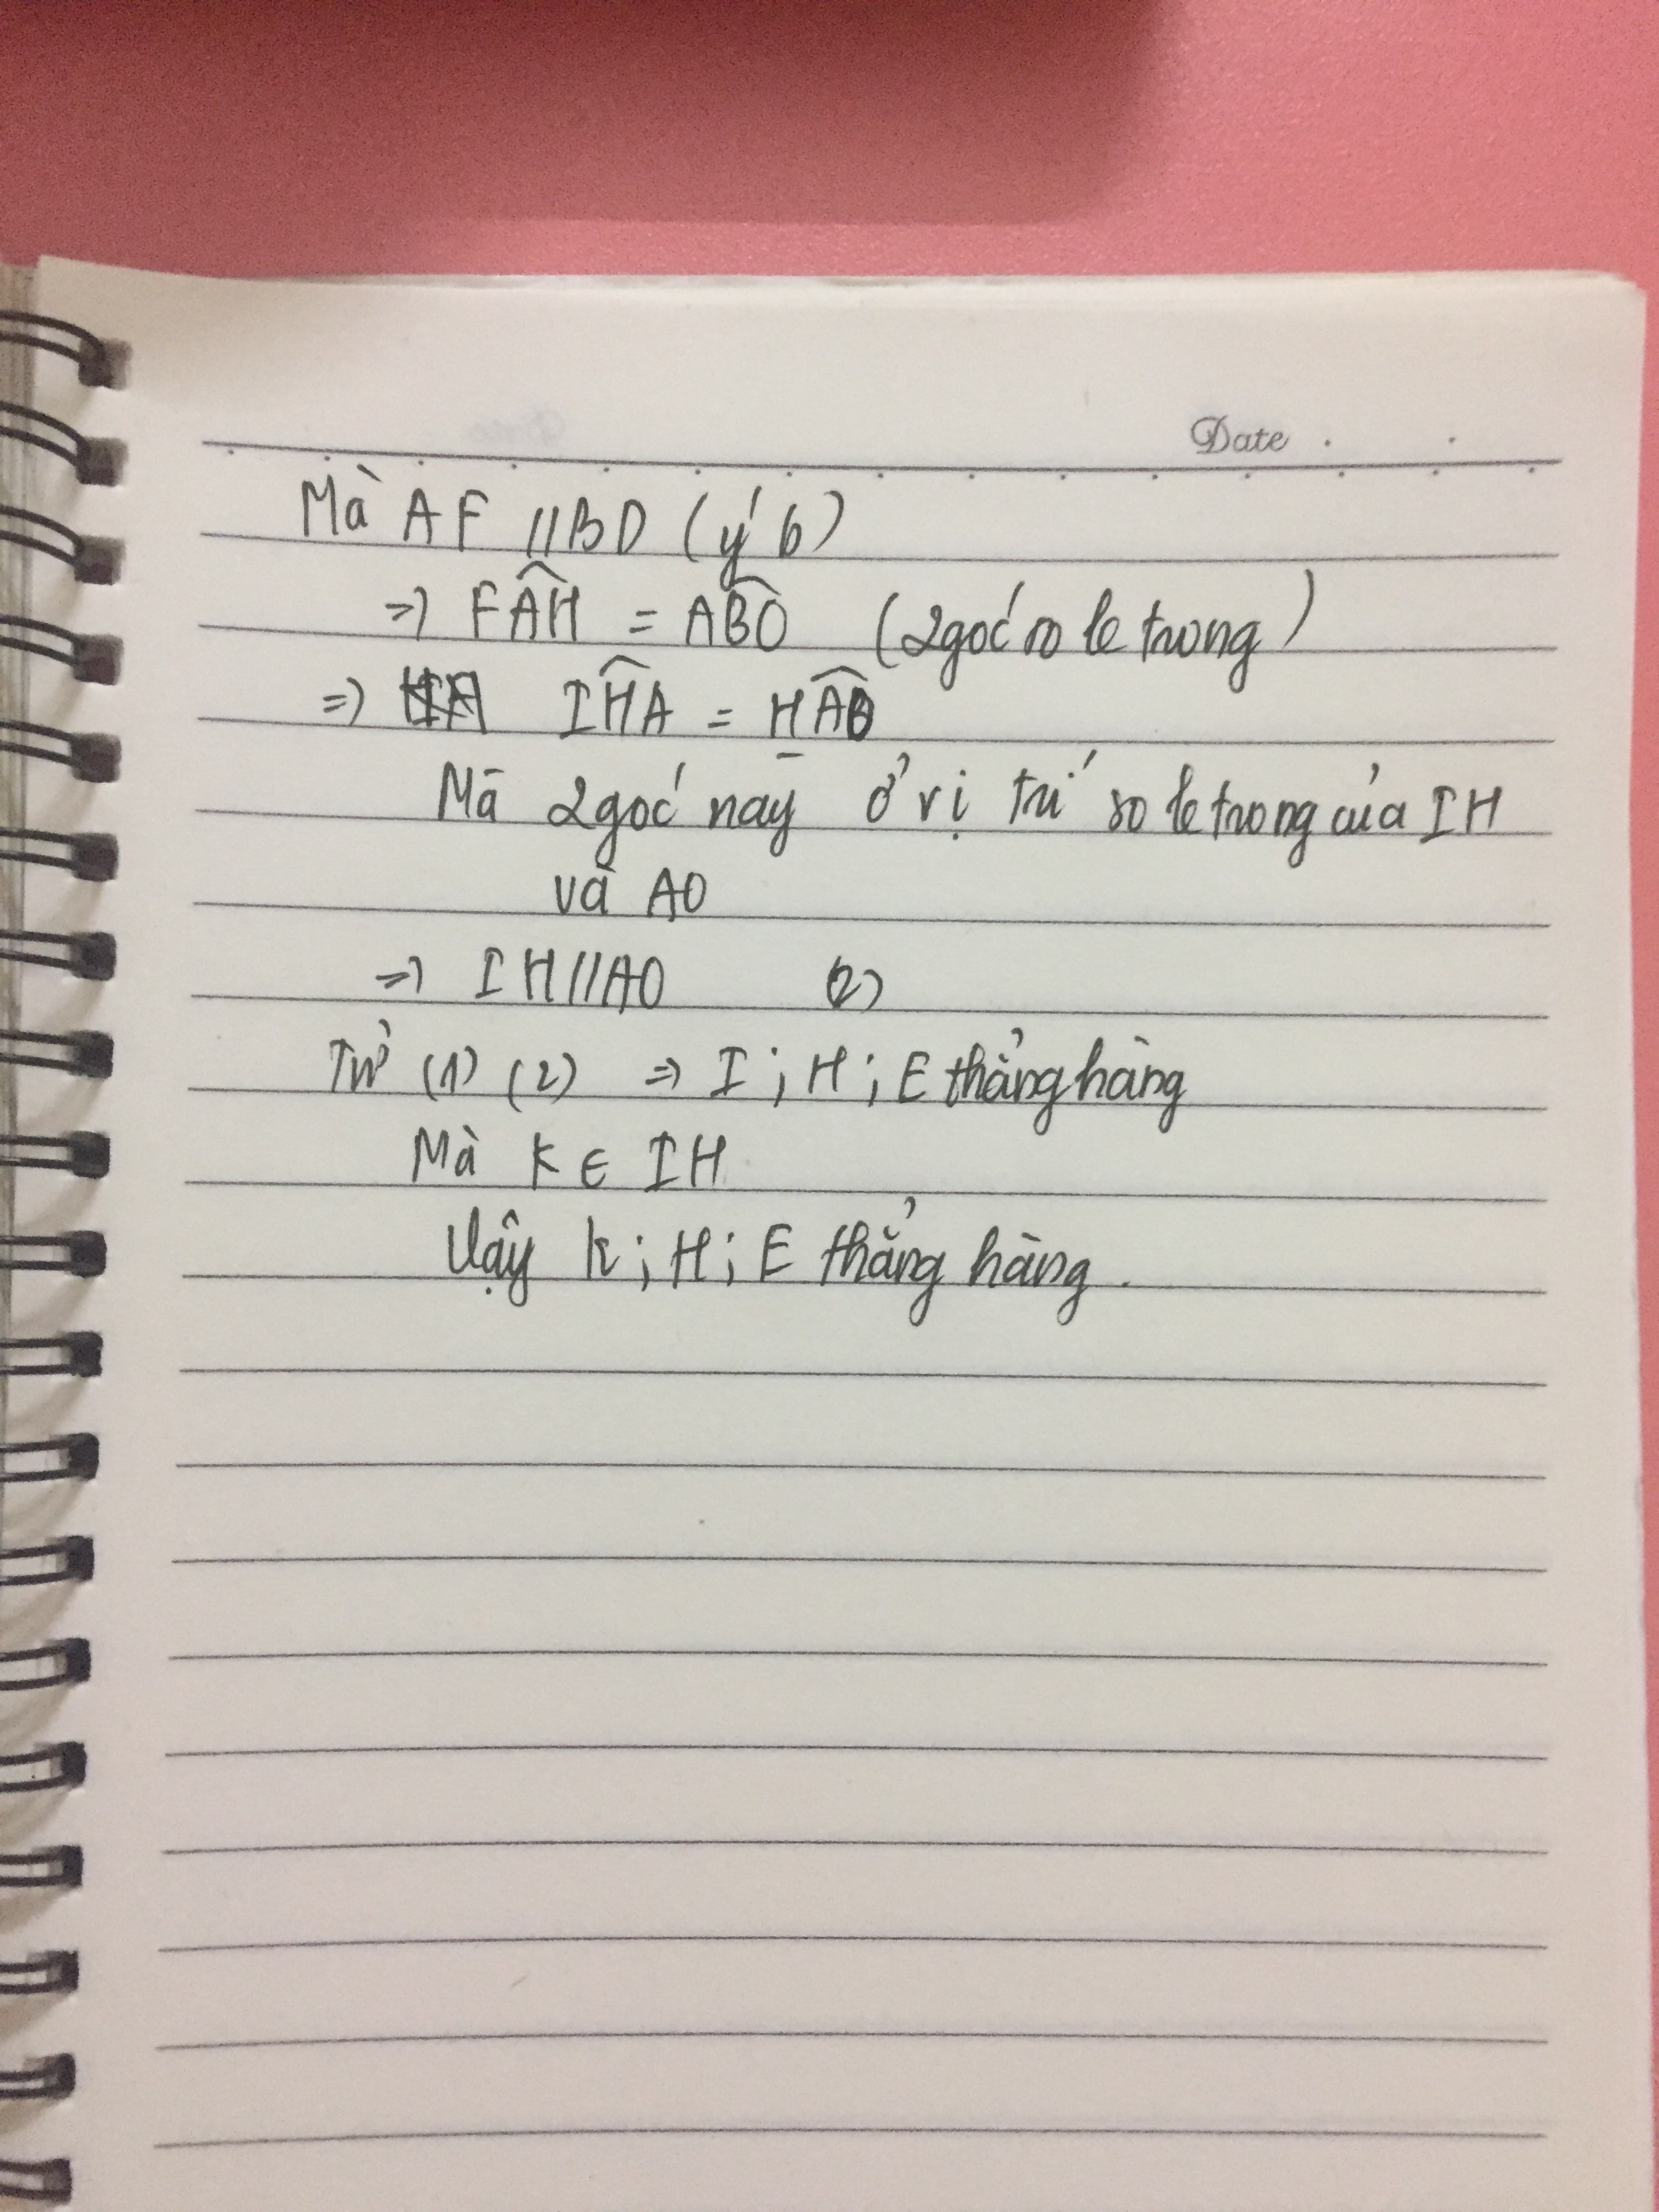 Date
Mà AF // BD (ý b)
=> FÂH = AB̂O (2 góc so le trong)
=> IĤA = HÂO
Mà 2 góc này ở vị trí so le trong của IH
và AO
=> IH // AO (2)
Từ (1) (2) => I ; H ; E thẳng hàng
Mà K ∈ IH
Vậy K ; H ; E thẳng hàng .